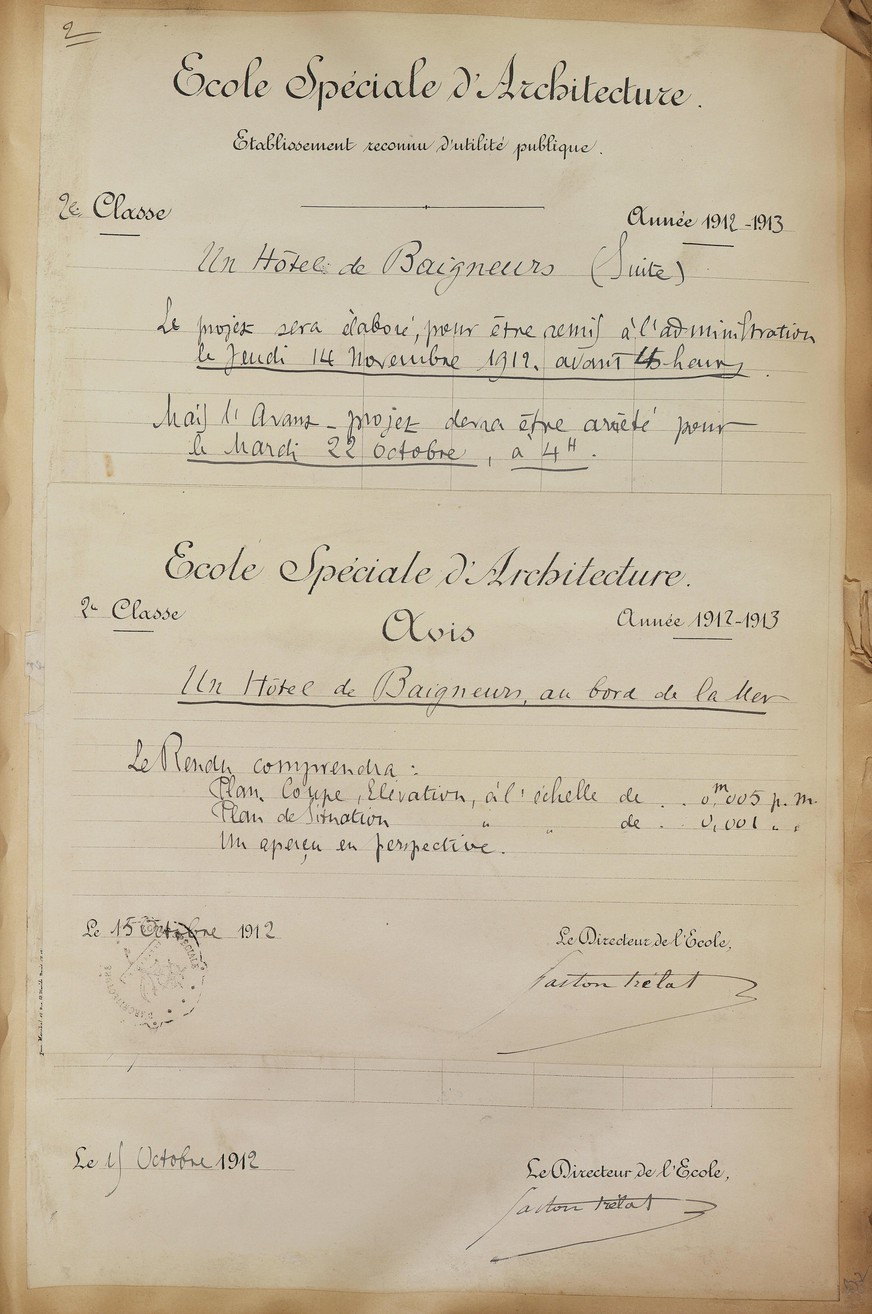 2
Ecole Spéciale d'Architecture.
Etablissement reconnu d'utilité publique.
2e Classe
Année 1912-1913
Un Hôtel de Baigneurs (Suite)
Le projet sera élaboré, pour être remis à l'administration
le Jeudi 14 Novembre 1912. avant heures.
Mais l'Avant-projet devra être arrêté pour
le Mardi 22 Octobre, à 4H.
Ecole Spéciale d'Architecture.
2e Classe
Année 1912-1913
Avis
Un Hôtel de Baigneurs, au bord de la Mer
Le Rendu comprendra :
Plan, Coupe, Elévation, à l'échelle de . . 0,m005 p. m.
Plan de Situation " " de . 0,001 " "
Un aperçu en perspective.
Le 15 Octobre 1912
Le Directeur de l'Ecole,
Gaston Trélat
SPÉCIALE
D'ARCHITECTURE
Le 15 Octobre 1912
Le Directeur de l'Ecole,
Gaston Trélat